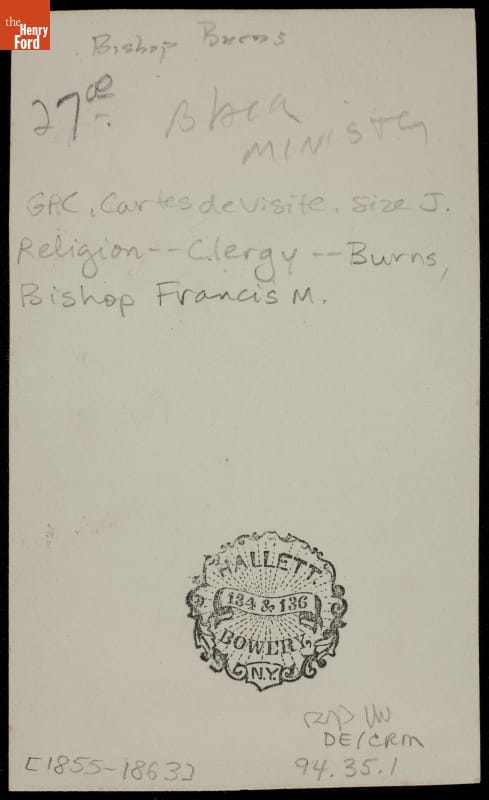 the
Henry
Ford
Bishop Burns
27.00
Black
Minister
GPC. Cartes de visite. Size J.
Religion -- Clergy -- Burns,
Bishop Francis M.
HALLETT.
134 & 136
BOWERY,
N.Y.
DE/CRM
[1855-1863]
94.35.1